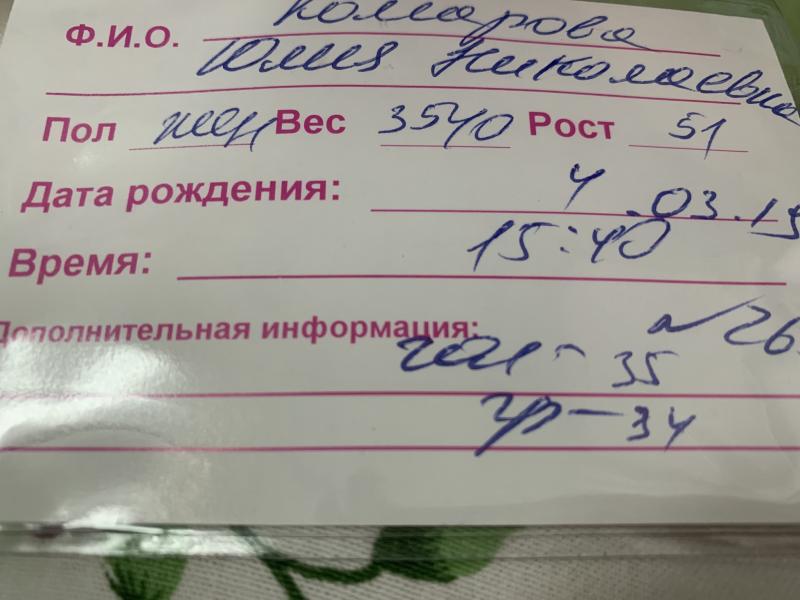 Ф.И.О. Комарова
Юлия Николаевна
Пол жен Вес 3540 Рост 51
Дата рождения: 4.03.15
Время: 15:40
Дополнительная информация: № 26
гол - 35
гр - 34